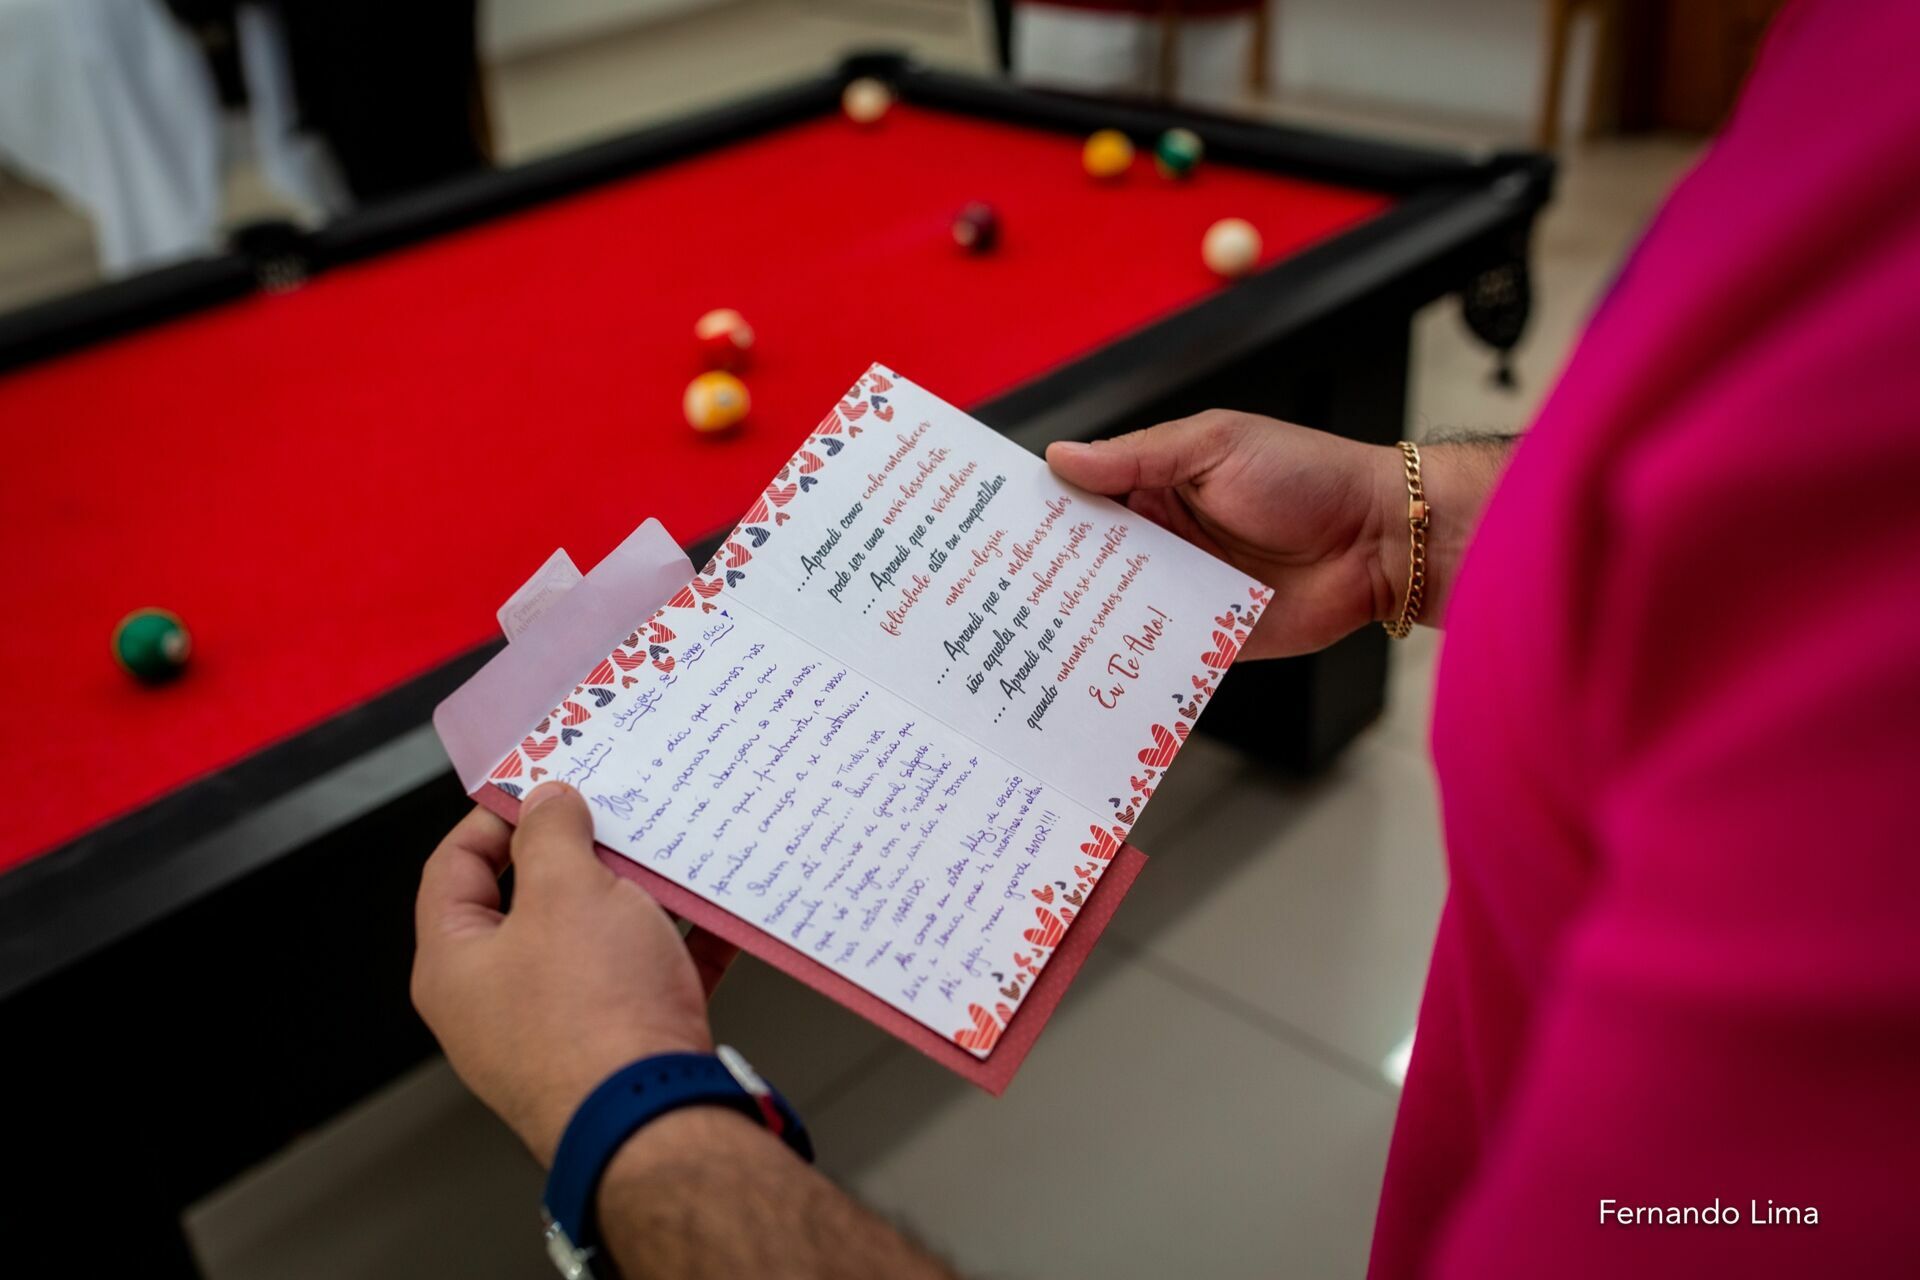 ...Aprendi como cada amanhecer
pode ser uma nova descoberta.
... Aprendi que a verdadeira
felicidade está em compartilhar
amor e alegria.
... Aprendi que os melhores sonhos
são aqueles que sonhamos juntos.
... Aprendi que a vida só é completa
quando amamos e somos amados.
Eu Te Amo!
Enfim, chegou o nosso dia!
Hoje é o dia que vamos nos
tornar apenas um, dia que
Deus irá abençoar o nosso amor,
dia em que, finalmente, a nossa
família começa a se construir...
Quem diria que o Tinder nos
traria até aqui... Quem diria que
aquele menino de General Salgado,
que só chegou com a "mochilinha"
nas costas iria um dia se tornar o
meu MARIDO.
Ah como eu estou feliz, de coração
leve e louca para te encontrar no altar
Até já, meu grande AMOR!!!
Fernando Lima